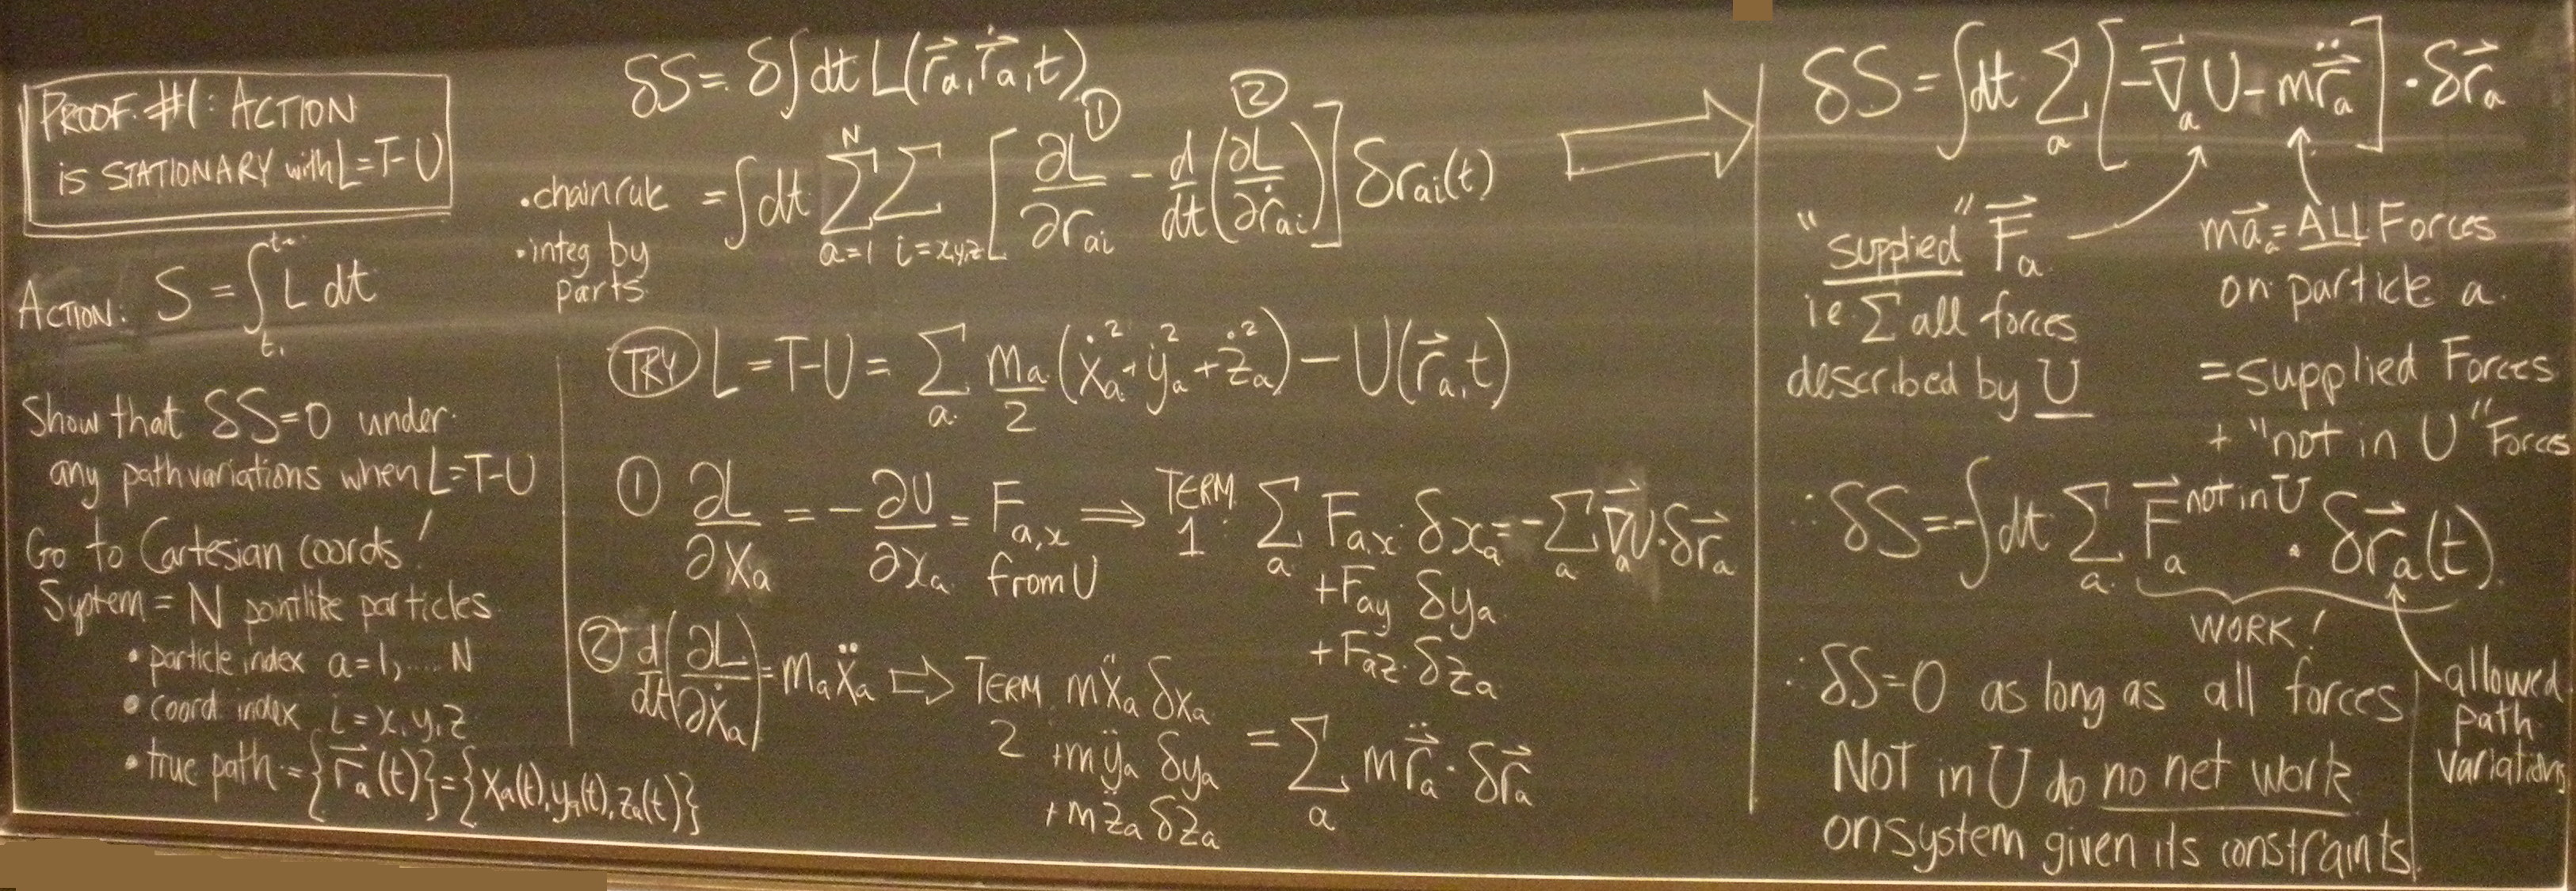 PROOF #1: ACTION
is STATIONARY with L=T-U
ACTION: S = ∫_{t₁}^{t₂} L dt
Show that δS=0 under
any path variations when L=T-U
Go to Cartesian coords!
System = N pointlike particles
• particle index a=1,.... N
• coord index i = x,y,z
• true path = {r⃗_a(t)} = {x_a(t), y_a(t), z_a(t)}
δS = δ∫dt L(r⃗_a, ṙ⃗_a, t)
① ②
• chain rule
• integ by
parts
= ∫dt Σ_{a=1}^{N} Σ_{i=x,y,z} [∂L/∂r_{ai} - d/dt(∂L/∂ṙ_{ai})] δr_{ai}(t)
TRY L = T-U = Σ_a m_a/2 (ẋ_a² + ẏ_a² + ż_a²) - U(r⃗_a, t)
① ∂L/∂x_a = -∂U/∂x_a = F_{a,x} from U ⟹ TERM 1: Σ_a F_{ax} δx_a = -Σ_a ∇⃗_a U · δr⃗_a
+F_{ay} δy_a
+F_{az} δz_a
② d/dt(∂L/∂ẋ_a) = m_a ẍ_a ⇨ TERM 2 mẍ_a δx_a
+mÿ_a δy_a = Σ_a m r̈⃗_a · δr⃗_a
+mz̈_a δz_a
δS = ∫dt Σ_a [-∇⃗_a U - m r̈⃗_a] · δr⃗_a
"supplied" F⃗_a
ie Σ all forces
described by U
ma⃗_a = ALL Forces
on particle a.
= supplied Forces
+ "not in U" Forces
∴ δS = -∫dt Σ_a F⃗_a^{not in U} · δr⃗_a(t)
WORK!
allowed
path
variations
∴ δS=0 as long as all forces
NOT in U do no net work
on system given its constraints